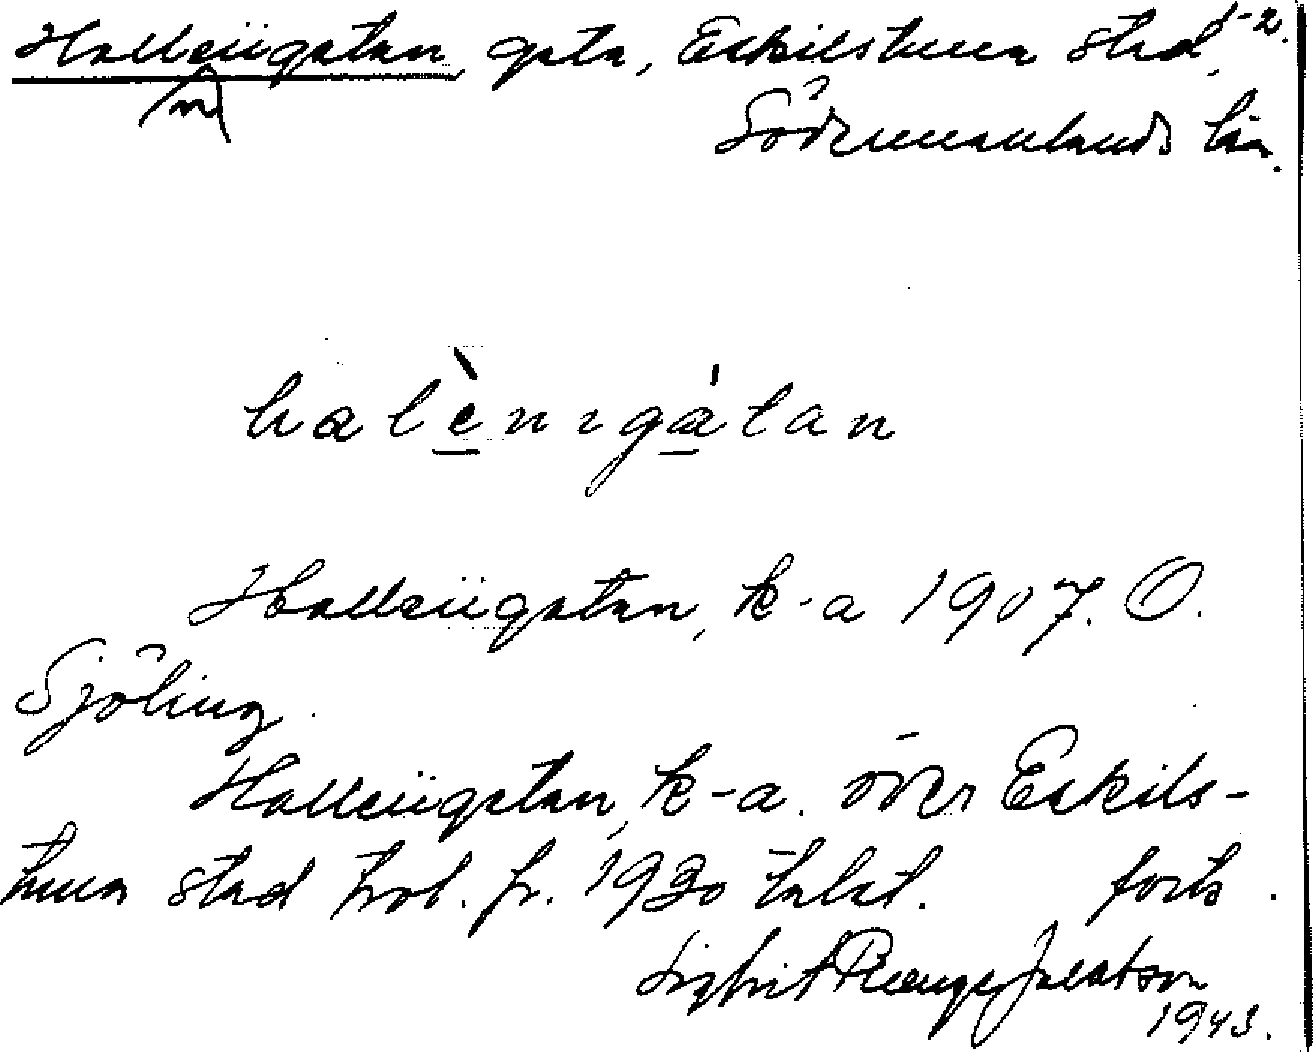 Halleniigatan, gata, Eskilstuna stad, 1-2.
n
Södermanlands län.
halènigátan
Halleniigatan, k-a 1907. O.
Sjöling.
Halleniigatan, k-a. över Eskils-
tuna stad trol. fr. 1930-talet. forts.
Plenge Jacobson
1943.